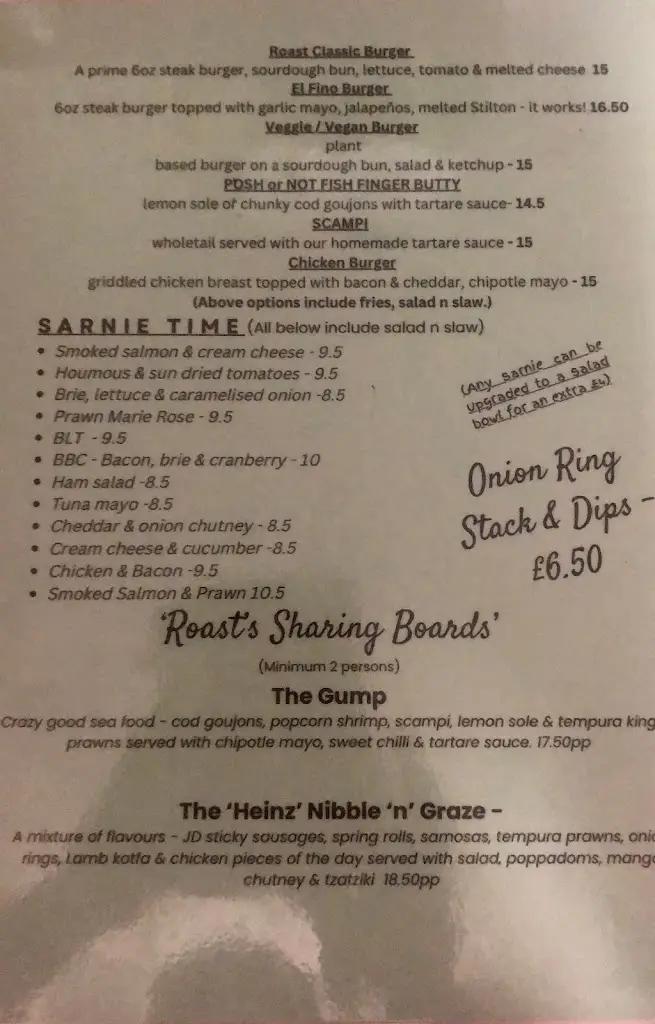 Roast Classic Burger
A prime 6oz steak burger, sourdough bun, lettuce, tomato & melted cheese 15
El Fino Burger
6oz steak burger topped with garlic mayo, jalapeños, melted Stilton - it works! 16.50
Veggie / Vegan Burger
plant
based burger on a sourdough bun, salad & ketchup - 15
POSH or NOT FISH FINGER BUTTY
lemon sole or chunky cod goujons with tartare sauce- 14.5
SCAMPI
wholetail served with our homemade tartare sauce - 15
Chicken Burger
griddled chicken breast topped with bacon & cheddar, chipotle mayo - 15
(Above options include fries, salad n slaw.)
SARNIE TIME (All below include salad n slaw)
• Smoked salmon & cream cheese - 9.5
• Houmous & sun dried tomatoes - 9.5
• Brie, lettuce & caramelised onion -8.5
• Prawn Marie Rose - 9.5
• BLT - 9.5
• BBC - Bacon, brie & cranberry - 10
• Ham salad -8.5
• Tuna mayo -8.5
• Cheddar & onion chutney - 8.5
• Cream cheese & cucumber -8.5
• Chicken & Bacon -9.5
• Smoked Salmon & Prawn 10.5
(Any sarnie can be
upgraded to a salad
bowl for an extra £4)
Onion Ring
Stack & Dips -
£6.50
'Roast's Sharing Boards'
(Minimum 2 persons)
The Gump
Crazy good sea food - cod goujons, popcorn shrimp, scampi, lemon sole & tempura king
prawns served with chipotle mayo, sweet chilli & tartare sauce. 17.50pp
The 'Heinz' Nibble 'n' Graze -
A mixture of flavours - JD sticky sausages, spring rolls, samosas, tempura prawns,
rings, Lamb kotfa & chicken pieces of the day served with salad, poppadoms,
chutney & tzatziki 18.50pp